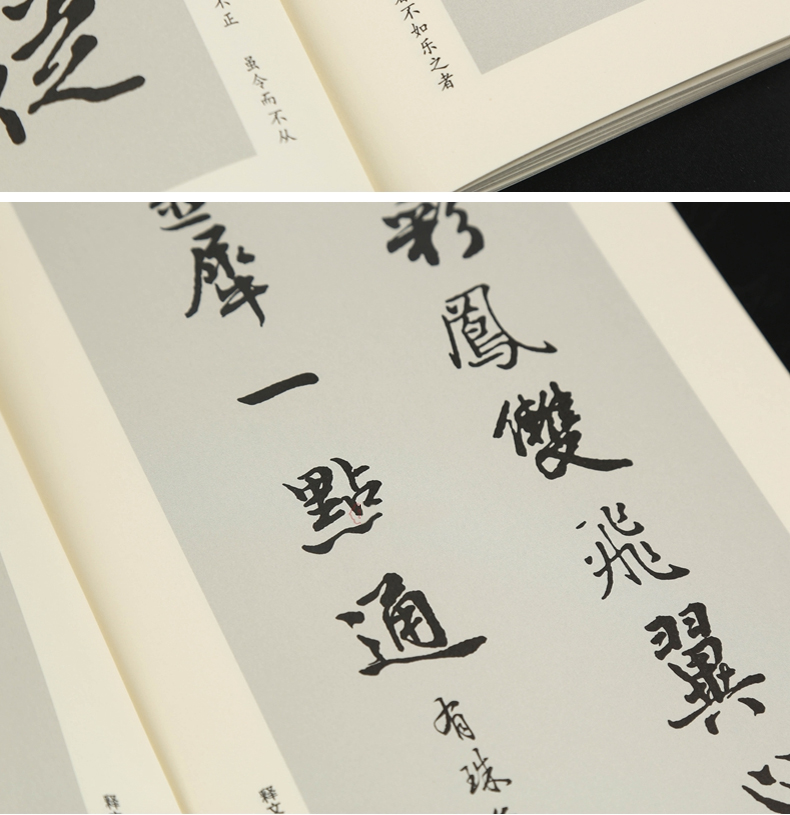 不正 虽令而不从
不如乐之者
彩鳳雙飛翼心
犀一點通
有珠
释文
释